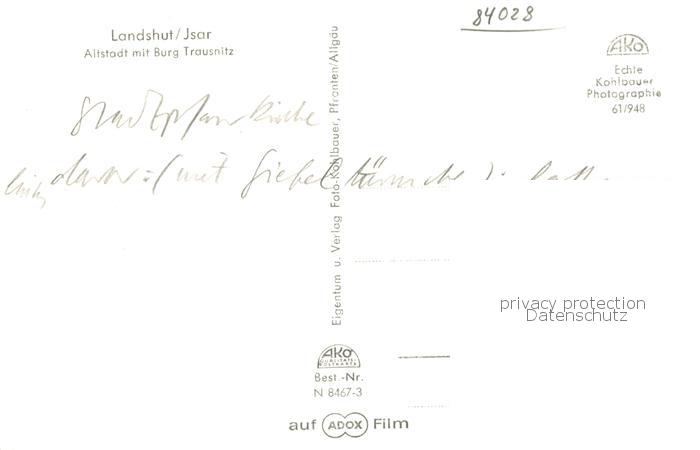 84028
Landshut/Jsar
Altstadt mit Burg Trausnitz
AKO
Echte
Kohlbauer
Photographie
61/948
Stadtpfarrkirche
links (mit Giebeltürmchen)
Eigentum u. Verlag Foto-Kohlbauer, Pfronten/Allgäu
privacy protection
Datenschutz
AKO
QUALITÄTS-
POSTKARTE
Best.-Nr.
N 8467-3
auf ADOX Film